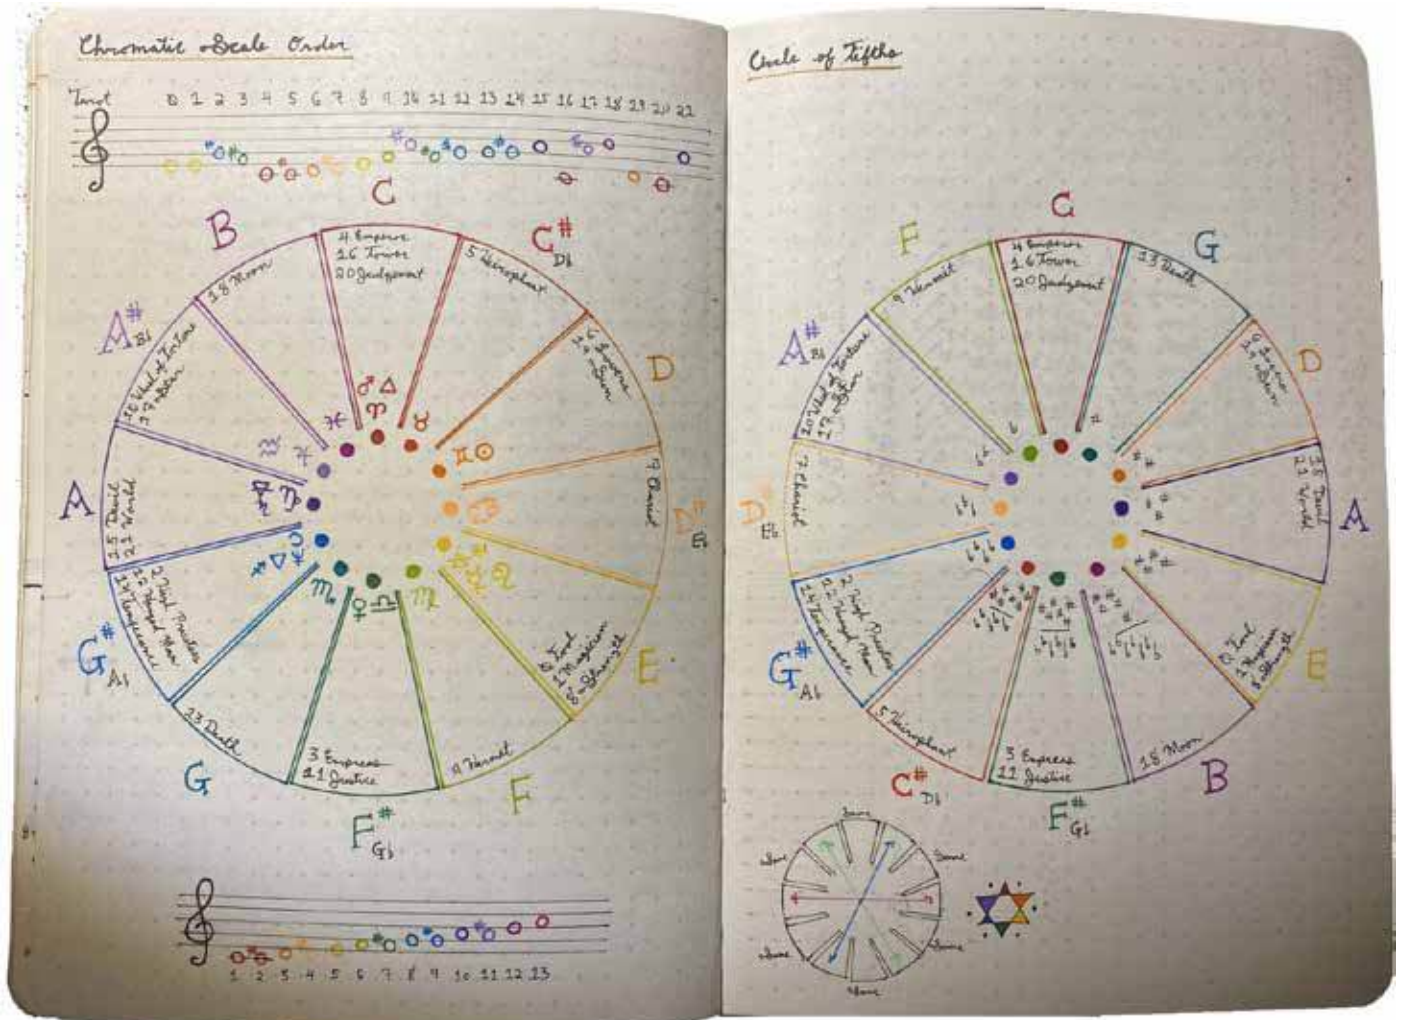 Chromatic Scale Order
Tarot 0 1 2 3 4 5 6 7 8 9 10 11 12 13 14 15 16 17 18 19 20 21
C
4 Emperor
16 Tower
20 Judgement
C#
Db
5 Heirophant
D
6 Lovers
19 Sun
D#
Eb
7 Chariot
E
0 Fool
1 Magician
Strength
F
9 Hermit
F#
Gb
3 Empress
11 Justice
G
13 Death
G#
Ab
2 High Priestess
12 Hanged Man
14 Temperance
A
15 Devil
21 World
A#
Bb
10 Wheel of Fortune
17 Star
B
18 Moon
♂ △
♈
♉
♊ ☉
♋
♌
♍
♀ ♎
♏
♑
♒
♓
1 2 3 4 5 6 7 8 9 10 11 12 13
Circle of Fifths
C
4 Emperor
16 Tower
20 Judgement
G
13 Death
D
6 Lovers
19 Sun
A
15 Devil
21 World
E
0 Fool
1 Magician
8 Strength
B
18 Moon
F#
Gb
3 Empress
11 Justice
C#
Db
5 Heirophant
G#
Ab
2 High Priestess
12 Hanged Man
14 Temperance
D#
Eb
7 Chariot
A#
Bb
10 Wheel of Fortune
17 Star
F
9 Hermit
Same
Same
Same
Same
Same
Same